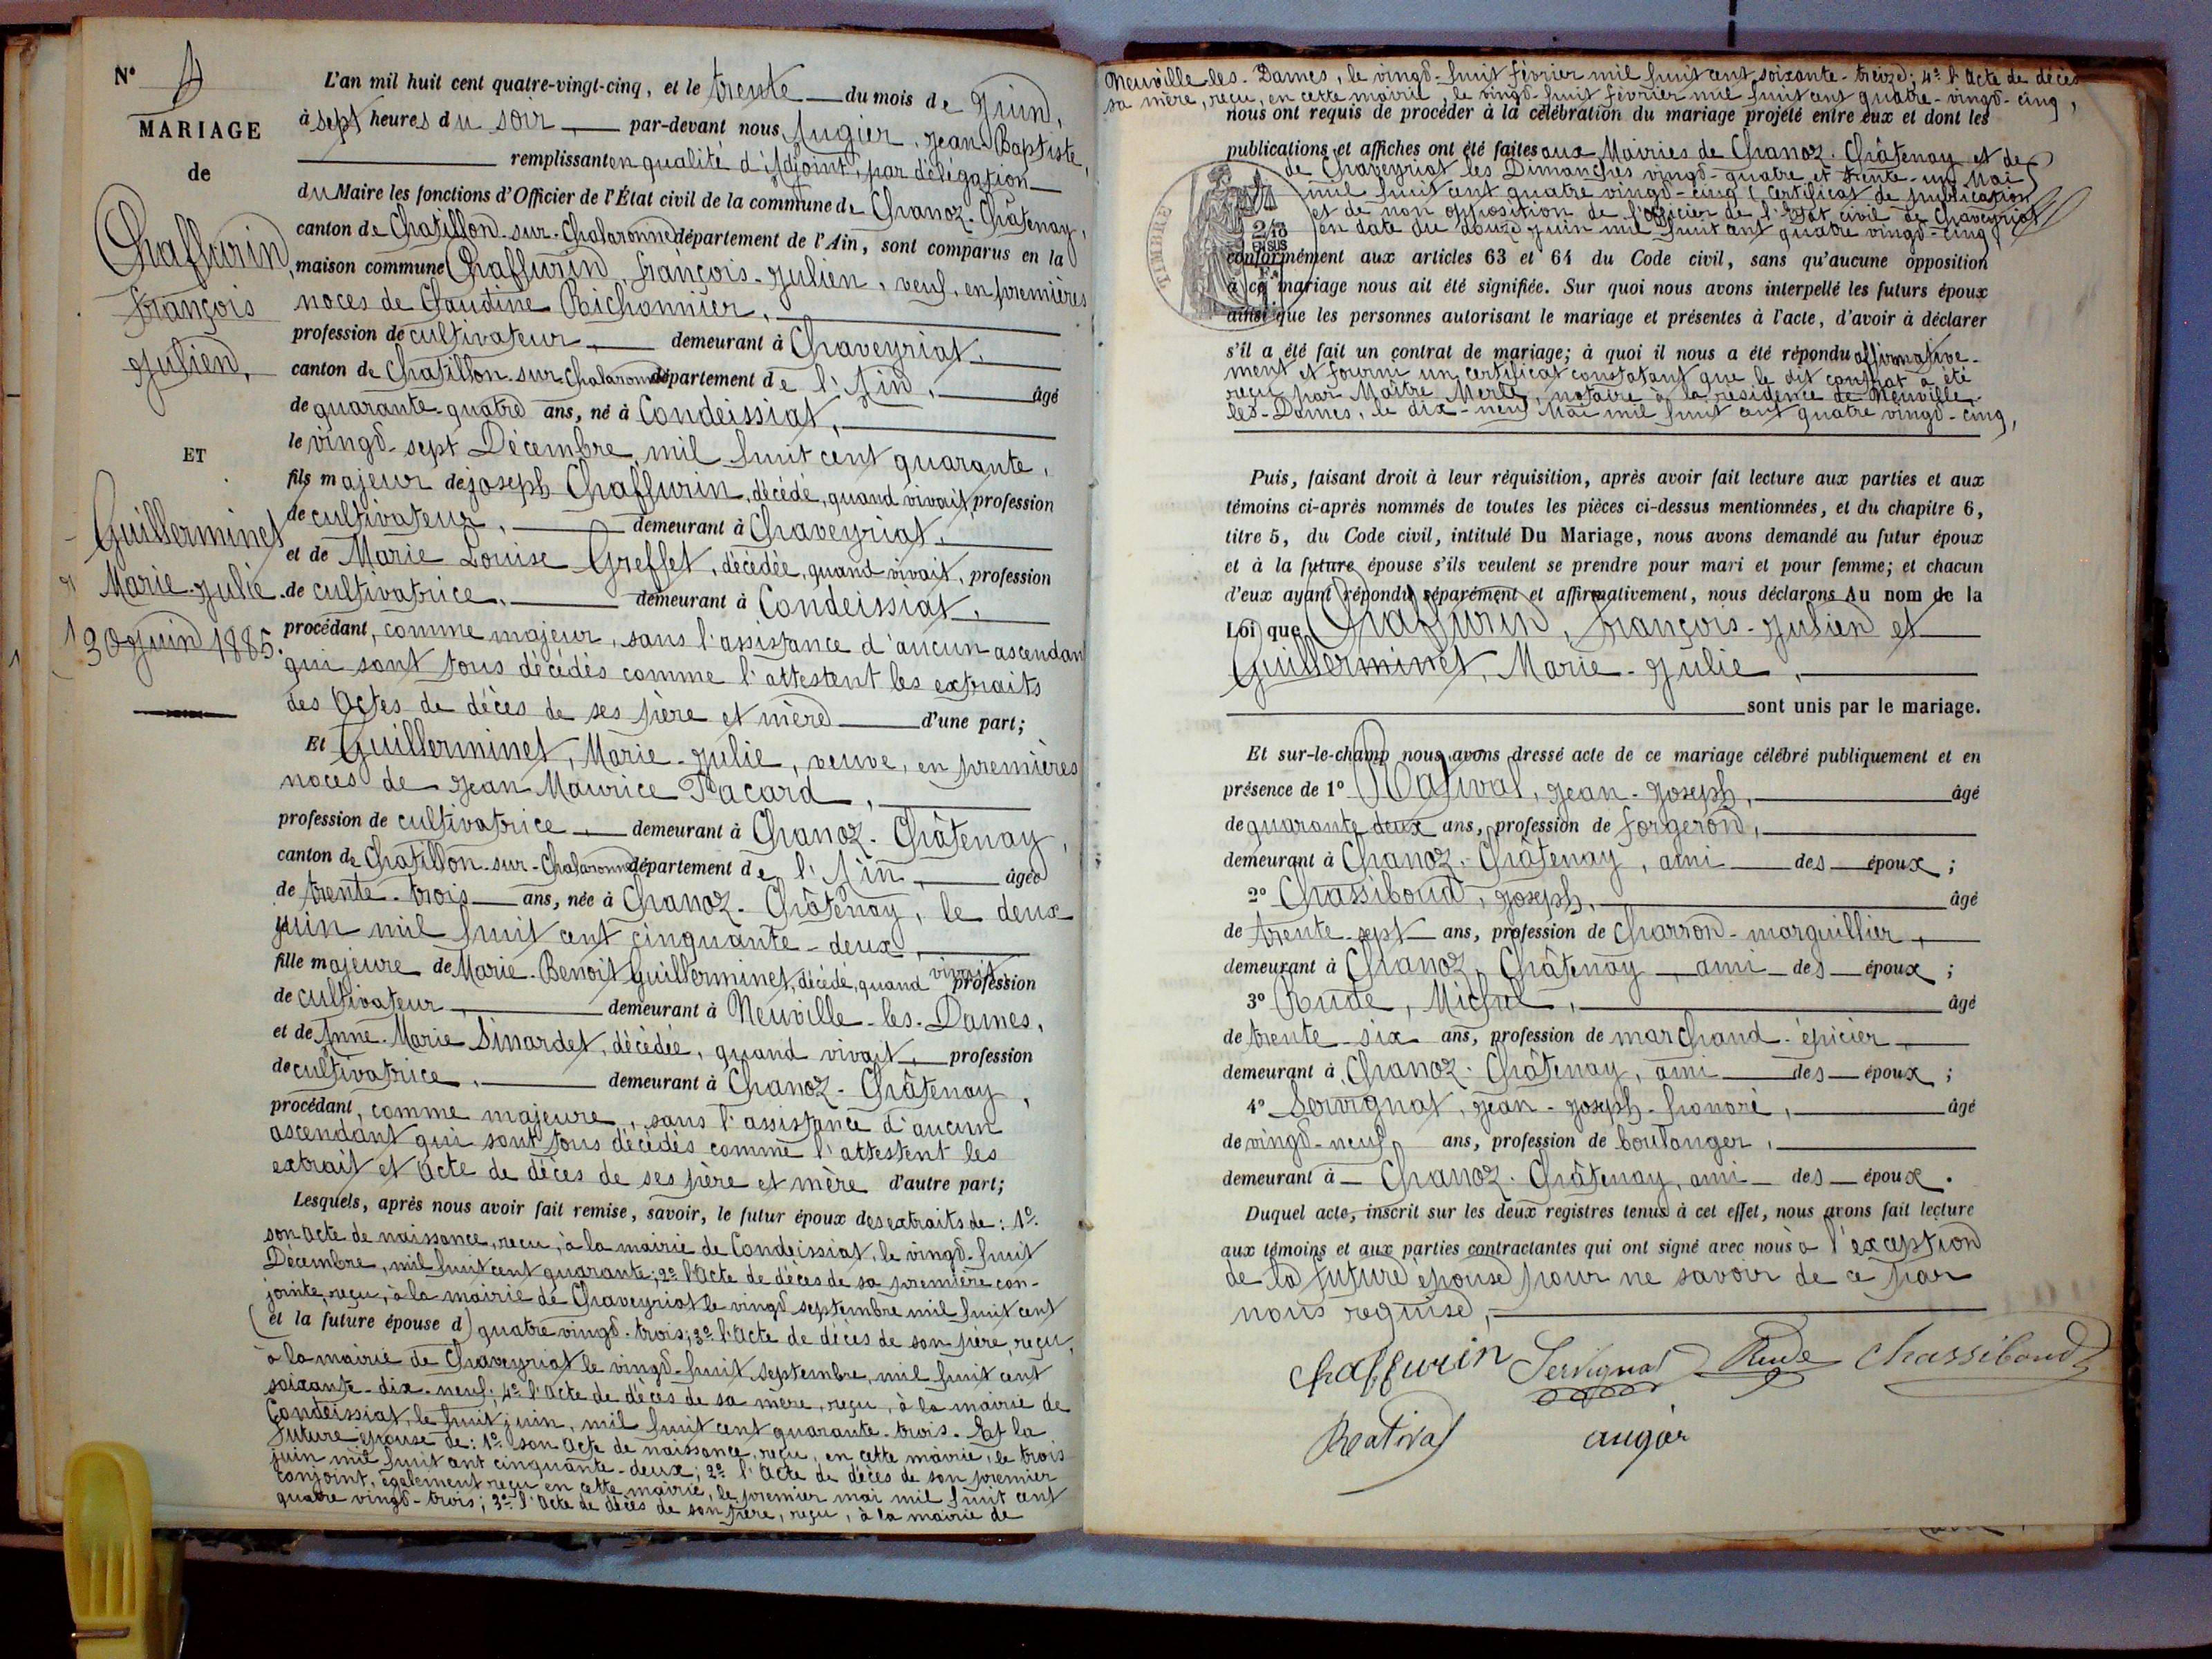 N° 4
MARIAGE
de
Chaffurin
François
Julien,
ET
Guillerminet
Marie-Julie
30 Juin 1885.
L'an mil huit cent quatre-vingt-cinq, et le trente du mois de Juin,
à sept heures du soir, par-devant nous Augier, Jean-Baptiste,
remplissant en qualité d'Adjoint, par délégation
du Maire les fonctions d'Officier de l'État civil de la commune de Chanoz-Châtenay,
canton de Chatillon-sur-Chalaronne département de l'Ain, sont comparus en la
maison commune Chaffurin, François-Julien, veuf, en premières
noces de Claudine Richonnier,
profession de cultivateur, demeurant à Chaveyriat,
canton de Chatillon-sur-Chalaronne département de l'Ain, âgé
de quarante-quatre ans, né à Condeissiat,
le vingt-sept Décembre mil huit cent quarante,
fils majeur de Joseph Chaffurin, décédé, quand vivait, profession
de cultivateur, demeurant à Chaveyriat,
et de Marie Louise Greffet, décédée, quand vivait, profession
de cultivatrice, demeurant à Condeissiat,
procédant, comme majeur, sans l'assistance d'aucun ascendant
qui sont tous décédés comme l'attestent les extraits
des Actes de décès de ses père et mère d'une part;
Et Guillerminet, Marie-Julie, veuve, en premières
noces de Jean Maurice Pacard,
profession de cultivatrice, demeurant à Chanoz-Châtenay,
canton de Chatillon-sur-Chalaronne département de l'Ain, âgée
de trente-trois ans, née à Chanoz-Châtenay, le deux
juin mil huit cent cinquante-deux,
fille majeure de Marie-Benoit Guillerminet, décédé, quand vivait, profession
de cultivateur, demeurant à Neuville-les-Dames,
et de Anne-Marie Sinardet, décédée, quand vivait, profession
de cultivatrice, demeurant à Chanoz-Châtenay,
procédant, comme majeure, sans l'assistance d'aucun
ascendant qui sont tous décédés comme l'attestent les
extrait et acte de décès de ses père et mère d'autre part;
Lesquels, après nous avoir fait remise, savoir, le futur époux des extraits de: 1°.
son acte de naissance, reçu, à la mairie de Condeissiat, le vingt-huit
Décembre, mil huit cent quarante; 2° l'Acte de décès de sa première con-
jointe, reçu, à la mairie de Chaveyriat le vingt septembre mil huit cent
(et la future épouse d) quatre vingt-trois; 3° l'Acte de décès de son père, reçu,
à la mairie de Chaveyriat le vingt-huit septembre, mil huit cent
soixante-dix-neuf; 4° l'Acte de décès de sa mère, reçu, à la mairie de
Condeissiat, le huit juin, mil huit cent quarante-trois. Et la
future épouse de: 1° son Acte de naissance, reçu, en cette mairie, le trois
juin mil huit cent cinquante-deux; 2° l'Acte de décès de son premier
conjoint, également reçu en cette mairie, le premier mai mil huit cent
quatre vingt-trois; 3° l'Acte de décès de son père, reçu, à la mairie de
Neuville-les-Dames, le vingt-huit février mil huit cent soixante-treize; 4° l'Acte de décès
sa mère, reçu, en cette mairie, le vingt-huit février mil huit cent quatre-vingt-cinq,
nous ont requis de procéder à la célébration du mariage projeté entre eux et dont les
publications et affiches ont été faites aux Mairies de Chanoz-Châtenay et de
de Chaveyriat les Dimanches vingt-quatre et trente-un Mai
mil huit cent quatre vingt-cinq (certificat de publication
et de non opposition de l'officier de l'Etat civil de Chaveyriat
en date du douze juin mil huit cent quatre vingt-cinq)
TIMBRE
2/10
EN SUS
conformément aux articles 63 et 64 du Code civil, sans qu'aucune opposition
à ce mariage nous ait été signifiée. Sur quoi nous avons interpellé les futurs époux
ainsi que les personnes autorisant le mariage et présentes à l'acte, d'avoir à déclarer
s'il a été fait un contrat de mariage; à quoi il nous a été répondu affirmative-
ment et fourni un certificat constatant que le dit contrat a été
reçu par Maître Merle, notaire à la résidence de Neuville-
les-Dames, le dix-neuf Mai mil huit cent quatre vingt-cinq,
Puis, faisant droit à leur réquisition, après avoir fait lecture aux parties et aux
témoins ci-après nommés de toutes les pièces ci-dessus mentionnées, et du chapitre 6,
titre 5, du Code civil, intitulé Du Mariage, nous avons demandé au futur époux
et à la future épouse s'ils veulent se prendre pour mari et pour femme; et chacun
d'eux ayant répondu séparément et affirmativement, nous déclarons Au nom de la
Loi que Chaffurin, François-Julien et
Guillerminet, Marie-Julie,
sont unis par le mariage.
Et sur-le-champ nous avons dressé acte de ce mariage célébré publiquement et en
présence de 1° Rativat, Jean-Joseph, âgé
de quarante deux ans, profession de forgeron,
demeurant à Chanoz-Châtenay, ami des époux;
2° Chassiboud, Joseph, âgé
de trente-sept ans, profession de charron-marguillier,
demeurant à Chanoz-Châtenay, ami des époux;
3° Rude, Michel, âgé
de trente-six ans, profession de marchand-épicier,
demeurant à Chanoz-Châtenay, ami des époux;
4° Servignat, Jean-Joseph-honoré, âgé
de vingt-neuf ans, profession de boulanger,
demeurant à Chanoz-Châtenay, ami des époux.
Duquel acte, inscrit sur les deux registres tenus à cet effet, nous avons fait lecture
aux témoins et aux parties contractantes qui ont signé avec nous à l'exception
de la future épouse pour ne savoir de ce par
nous requise,
Chaffurin Servignat Rude Chassiboud
Rativat augier